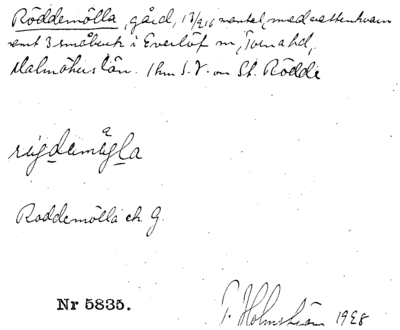 Röddemölla, gård, 13/216 mantel, med vattenkvarn
samt 3 småbruk i Everlöf sn, Torna hd,
Malmöhus län. 1 km S.V. om St. Rödde
Roddemölla ek g.
Nr 5835.
T. Holmström 1928